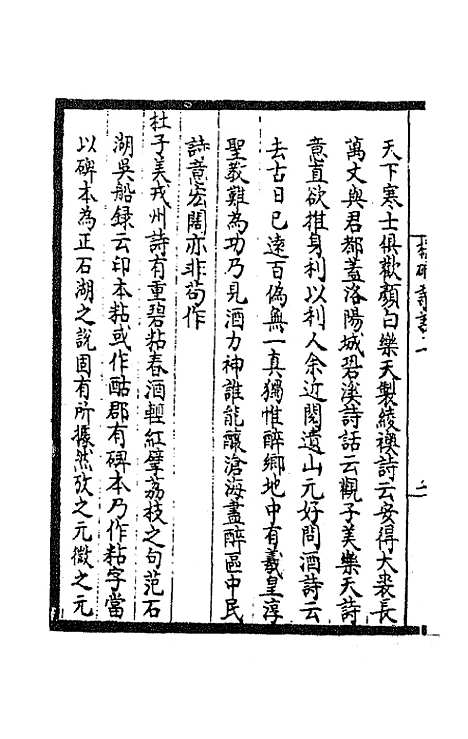 天下寒士俱歡顏白樂天製綾襖詩云安得大裘長
萬丈與君都蓋洛陽城䂬溪詩話云觀子美樂天詩
意直欲推身利以利人余近閱遺山元好問酒詩云
去古日已遠百偽無一真獨惟醉鄉地中有羲皇淳
聖教難為功乃見酒力神誰能釀滄海盡醉區中民
詩意宏闊亦非苟作
杜子美戎州詩有重碧粘春酒輕紅擘荔枝之句范石
湖吳船録云印本粘或作酤郡有碑本乃作粘字當
以碑本為正石湖之說固有所據然攷之元微之元